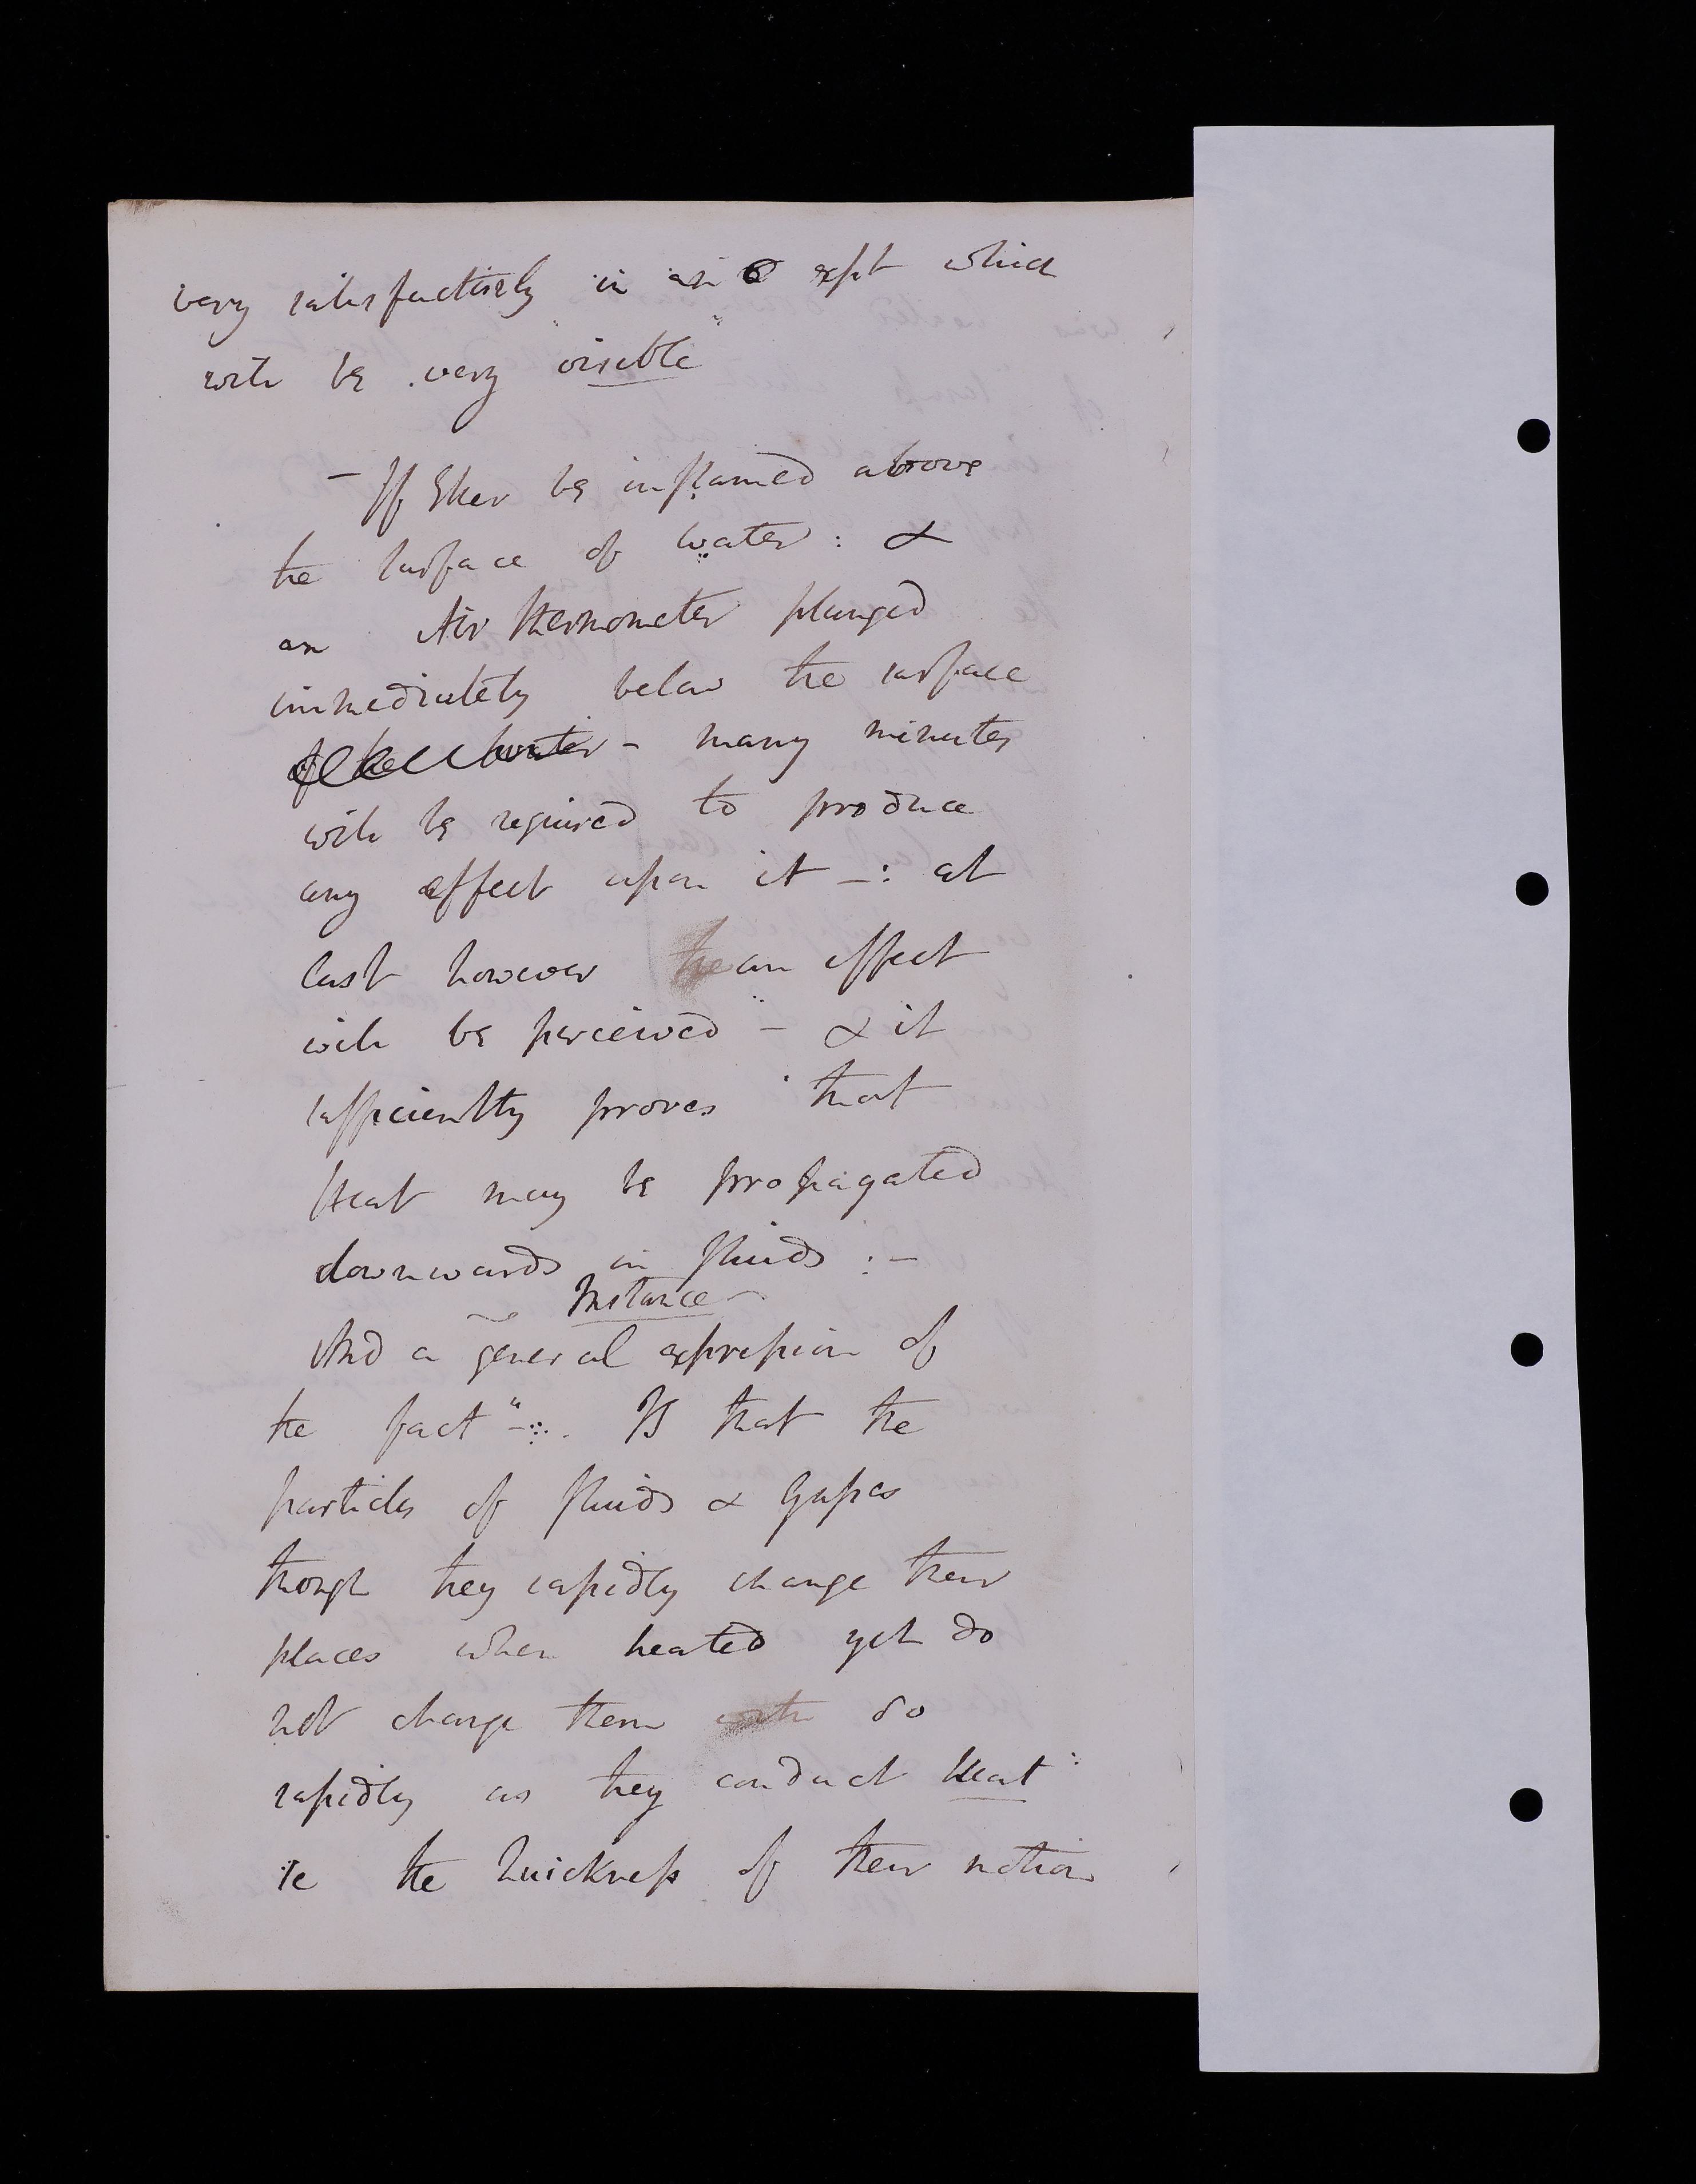 very satisfactorily in an expt which
will be very "visible"
– If Ether be inflamed above
the surface of water : &
an Air thermometer plunged
immediately below the surface
of the water – many minutes
will be required to produce
any effect upon it –: at
last however the an effect
will be perceived – & it
sufficiently proves that
Heat may be propagated
downwards in fluids : –
Instance
And a general expression of
the fact" –:. IS that the
particles of fluids & Gasses
though they rapidly change their
places when heated yet do
not change them with so
rapidly as they conduct Heat :
ie the Quickness of their motion